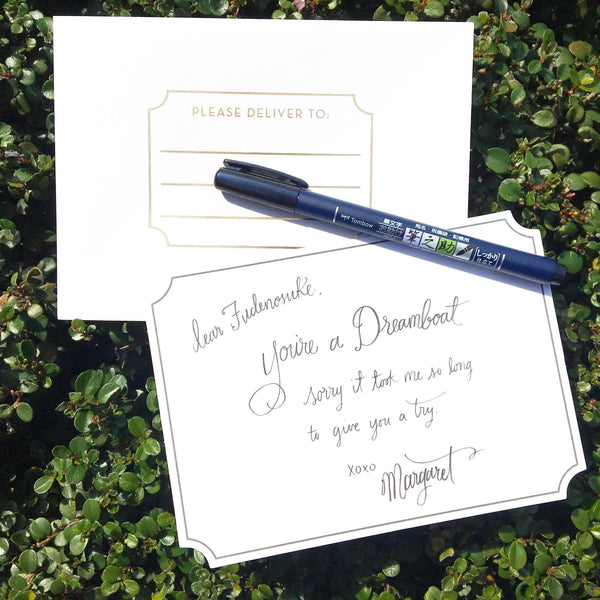 PLEASE DELIVER TO:
Tombow
筆文字
宛名・祝儀袋・記帳用
筆之助
しっかり
仕立て
dear Fudenosuke,
you're a Dreamboat.
sorry it took me so long
to give you a try.
xoxo
Margaret